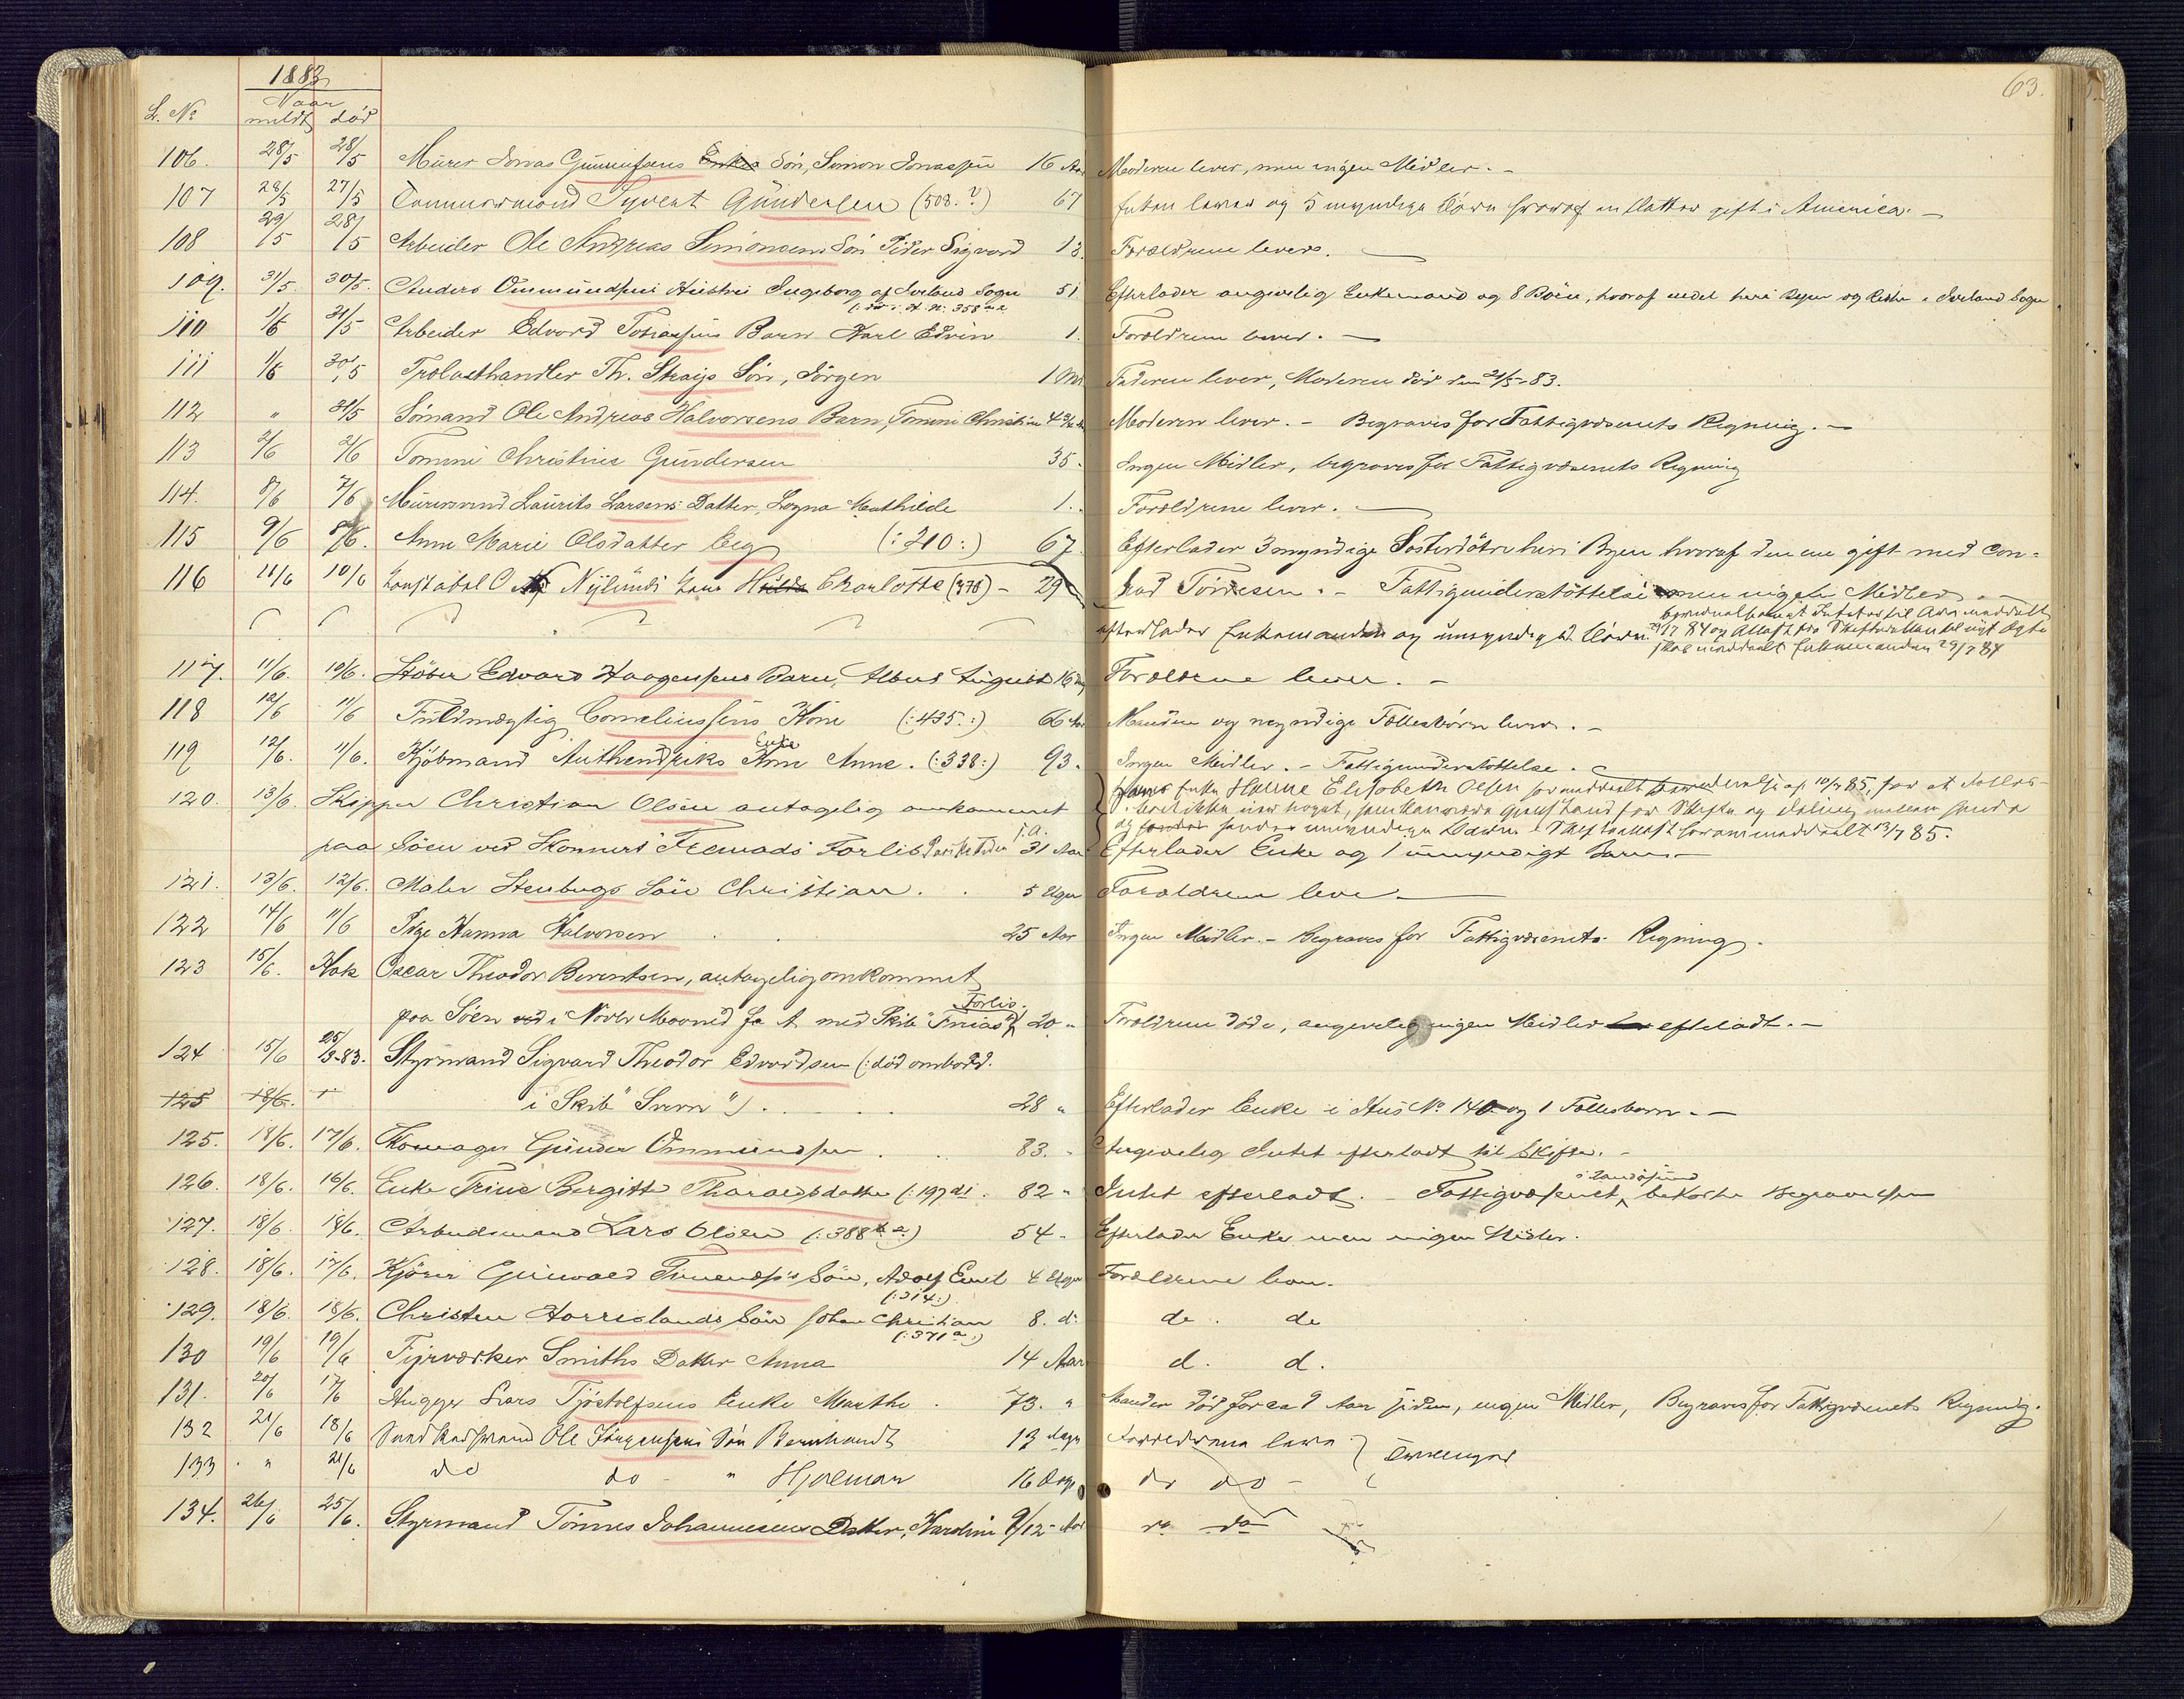 1883
63.
L. No Naar
meldt død
106. 28/5 28/5 Murer Jonas Gunnufsens Enke Søn, Simon Jonassen 16 Aar Moderen lever, men ingen Midler. -
107 28/5 27/5 Tømmermand Syvert Gundersen (508. ?) 67 Enken lever og 5 myndige Børn hvoraf en Datter gift i America. -
108 29/5 28/5 Arbeider Ole Andreas Simonsens Søn Peder Sigvard 13. Forældrene lever.
109. 31/5. 30/5. Anders Ommundsens Hustru Ingeborg af Iveland Sogn 51 Efterlader angivelig Enkemand og 8 Børn, hvoraf endel heri Byen og Resten i Iveland Sogn
110 1/6 31/5 Arbeider Edvard Tobiassens Barn Karl Edvin 1. Forældrene lever. -
111 1/6 30/5 Trælasthandler Th. Strays Søn, Jörgen 1 Md Faderen lever, Moderen död den 21/5-83.
112 " 31/5 Sömand Ole Andreas Halvorsens Barn, Tomine Christine 4 Moderen lever. - Begraves for Fattigvæsenets Regning. -
113 2/6 2/6 Tomine Christine Gundersen 35. Ingen Midler, begraves for Fattigvæsenets Regning
114. 8/6 7/6 Murersvend Laurits Larsens Datter, Lagna Mathilde 1. Forældrene lever. -
115 9/6 8/6. Anne Marie Olsdatter Eeg (: 210 :) 67 Efterlader 3 myndige Søsterdøtre heri Byen hvoraf den ene gift med Con-
116 11/6 10/6 Konstabel C Nylunds Kone Hilda Charlotte (378) - 29 rad Törresen. - Fattigunderstöttelse men ingen Midler -
efterlader Enkemanden og umyndige Børn.
29/7 84
Enkemanden 29/7 84
117. 11/6. 10/6. Støber Edvard Haagensens Barn, Albert August 16 Dg Forældrene lever. -
118 12/6 11/6 Fuldmægtig Corneliussens Kone (: 435. :) 66 Aar Manden og myndige Fællesbørn lever. -
119 12/6. 11/6. Kjøbmand Anthendriks Kone Enke Anne. (: 338 :) 93. Ingen Midler. - Fattigunderstøttelse.
120. 13/6. Skipper Christian Olsen antagelig omkommet Hans Enke Hanne Elisabeth Olsen
13/7 85.
paa Søen ved Skonnert Fremads Forlis 31 Aar Efterlader Enke og 1 umyndigt Barn -
121. 13/6. 12/6. Maler Stenbugs Søn Christian. 5 Uger Forældrene lever
122 14/6 11/6 Pige Hanna Halvorsen 25 Aar Ingen Midler. - Begraves for Fattigvæsenets Regning.
123 15/6. Kok Oscar Theodor Berentsen, antagelig omkommet
paa Søen ved i Novbr Maaned f. A. med Skib Forlis 20 " Forældrene døde, angivelig ingen Midler efterladt. -
124 15/6 25/3-83. Styrmand Sigvard Theodor Edvardsen (: död ombord.
125 18/6. i Skib "Svern") 28 " Efterlader Enke i Hus No 140 og 1 Fællesbarn. -
125. 18/6. 17/6. Gunder Ommundsen 83. " Angivelig Intet efterladt til Skifte. -
126. 18/6. 16/6. Enke Trine Bergitte Tharaldsdatter (: 197 di. 82 " Intet efterladt. - Fattigvæsenet i Randösund bekoster Begravelsen
127. 18/6. 18/6. Arbeidsmand Lars Olsen (: 388 ) 54 - Efterlader Enke men ingen Midler.
128. 18/6. 17/6. Kjører Gunvald Søn, Adolf Emil 4 Uger Forældrene lever.
(: 314 :)
129. 18/6. 18/6. Christen Harrislands Søn Johan Christian 8. do do. do
(: 371 a :)
130 19/6 19/6 Fyrværker Smiths Datter Anna 14 Aar d. d.
131. 20/6 17/6 Hugger Lars Tjøstolfsens Enke Marthe. 73. " Manden död for ca 9 Aar siden, ingen Midler, Begraves for Fattigvæsenets Regning.
132 21/6 18/6 Ole Jörgensens Søn Bernhardt 13 dage Forældrene lever } Tvillinger
133 " 21/6 do do " Hjalmar 16 Dage do do -
134. 26/6 25/6. Styrmand Tönnes Johannesens Datter, Karoline 9/12 Aar do do